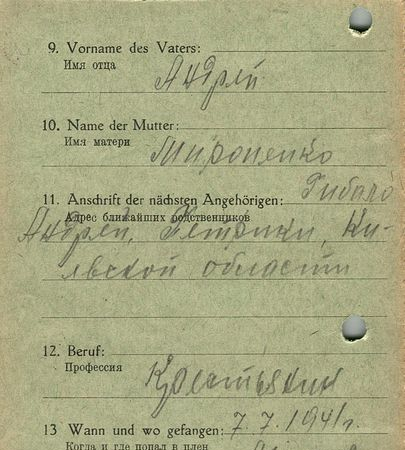 9. Vorname des Vaters:
Имя отца
Андрей
10. Name der Mutter:
Имя матери
Мироненко
11. Anschrift der nächsten Angehörigen:
Адрес ближайших родственников
Андрей,
области
12. Beruf:
Профессия
Крестьянин
13 Wann und wo gefangen: 7.7.1941г.
Когда и где попал в плен